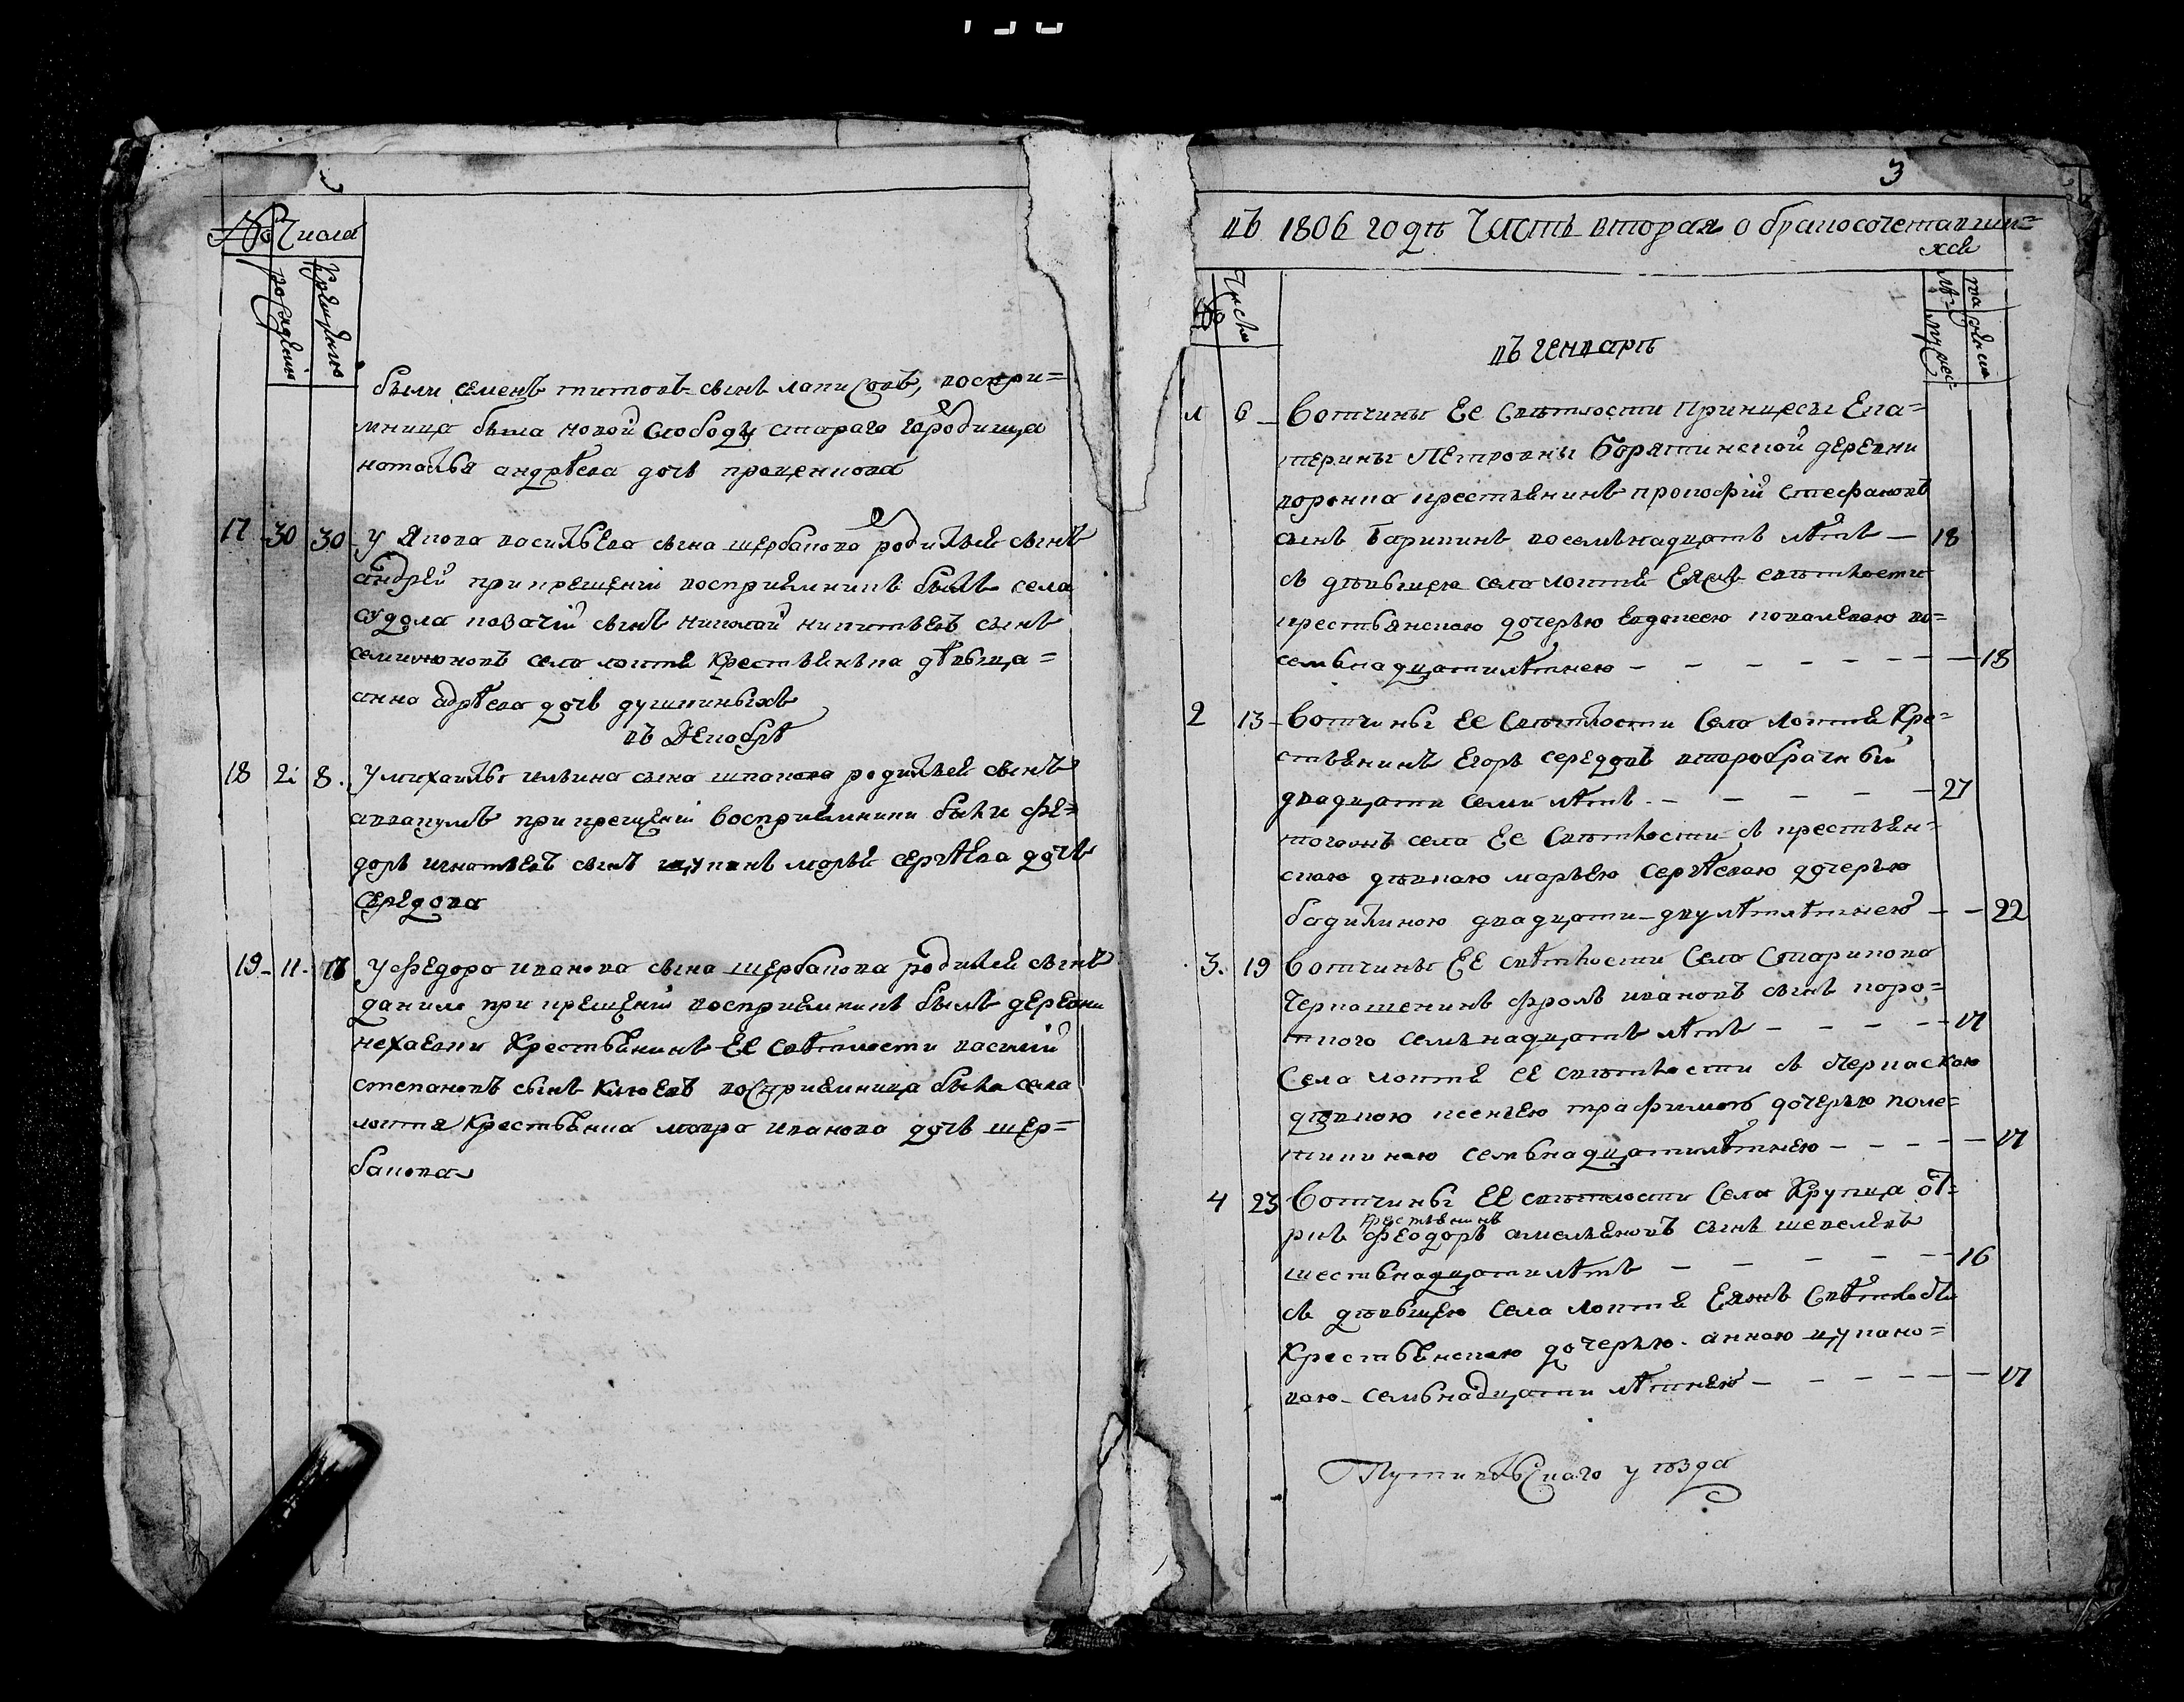 № Числа
рожденія
крещенія
были семенъ титовъ сынъ лапи, воспри=
мница была новой слободы стараго городища
наталья андрѣева дочь проценкова
17 30 30 У якова васильева сына щербакова родился сынъ
андрей при крещеніи восприемникъ былъ села
казачій сынъ николай никитьевъ сынъ
села локтя крестьянька дѣвица=
анна дочь
въ Декабрѣ
18 2 8. У михаилы ильина сына шпакова родился сынъ
аввакумъ при крещеніи восприемники были фе=
доръ игнатьевъ сынъ цупанъ марья сергѣева дочь
середова
19 11. У федора иванова сына щербакова родился сынъ
данило при крещеніи восприемникъ былъ деревни
нехаевки крестьянинъ ее свѣтлости василій
степановъ сынъ клюевъ восприемница была села
локтя крестьянка мавра иванова дочь щер=
бакова
3
въ 1806 годѣ Часть вторая о бракосочетавши=
хся
№ Число
лѣта
мужес=
женска
въ генварѣ
1 6 Вотчины ее свѣтлости принцесы ека=
терины петровны борятинской деревни
воронка крестьянинъ прокофій стефановъ
сынъ гарикинъ восемьнадцать лѣтъ — 18
съ дѣвицею села локтя ея свѣтлости
крестьянскою дочерью евдокеею ковалевою во=
семьнадцатилѣтнею — — — — — — — 18
2 13 Вотчины ее свѣтлости села локтя кре=
стьянинъ егоръ середовъ второбрачный
двадцати семи лѣтъ. — — — — — 27
тогожъ села ее свѣтлости съ крестьян=
скою дѣвкою марьею сергѣевою дочерью
бадилиною двадцати-двулѣтнею — — 22
3. 19 Вотчины ее свѣтлости села старикова
черкашенинъ фролъ ивановъ сынъ коро=
ткого семьнадцать лѣтъ — — — — 17
Села локтя ее свѣтлости съ черкаскою
дѣвкою ксенѣею трафимовою дочерью поле=
тикиною семьнадцатилѣтнею — — — — — 17
4 23 Вотчины ее свѣтлости села крупца от=
рокъ крестьянинъ феодоръ амельяновъ сынъ шевелевъ
шестьнадцатилѣтъ — — — — — 16
съ дѣвицею села локтя еяжъ свѣтлости
крестьянскою дочерью анною цупано=
вою семьнадцати лѣтнею — — — — — — 17
Путивльскаго уѣзда